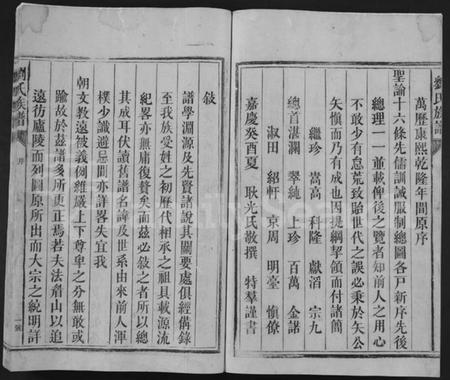 劉氏族譜
萬歷康熙乾隆年間原序
聖諭十六條先儒訓誡服制總圖各戸新序先後
總理一一並載俾後之覽者知前人之用心
不敢少有怠荒致貽世代之誤必秉於矢公
矢慎而乃有成也因提綱挈領而付諸簡
繼珍 嵩高 科隆 獻滔 宗九
總首湛瀾 翠純 上珍 百萬 金諾
淑田 紹軒 京周 明臺 慎僚
嘉慶癸酉夏 耿光氏敬撰 特羣謹書
敍
譜學淵源及先賢諸說其關要處俱經備錄
至我族受姓之初歷代相承之祖具載源流
紀畧亦無庸復贅矣而兹必敍之者所以總
其成耳伏讀舊譜名諱及世系由來前人渾
樸少識避忌間亦詳畧失宜我
朝文教遠被義例雖嚴上下尊卑之分無敢或
踰故於兹譜多所更正焉若夫法眉山以追
遠彷廬陵而列圖原所出而大宗之統明詳
劉氏族譜 序 一號